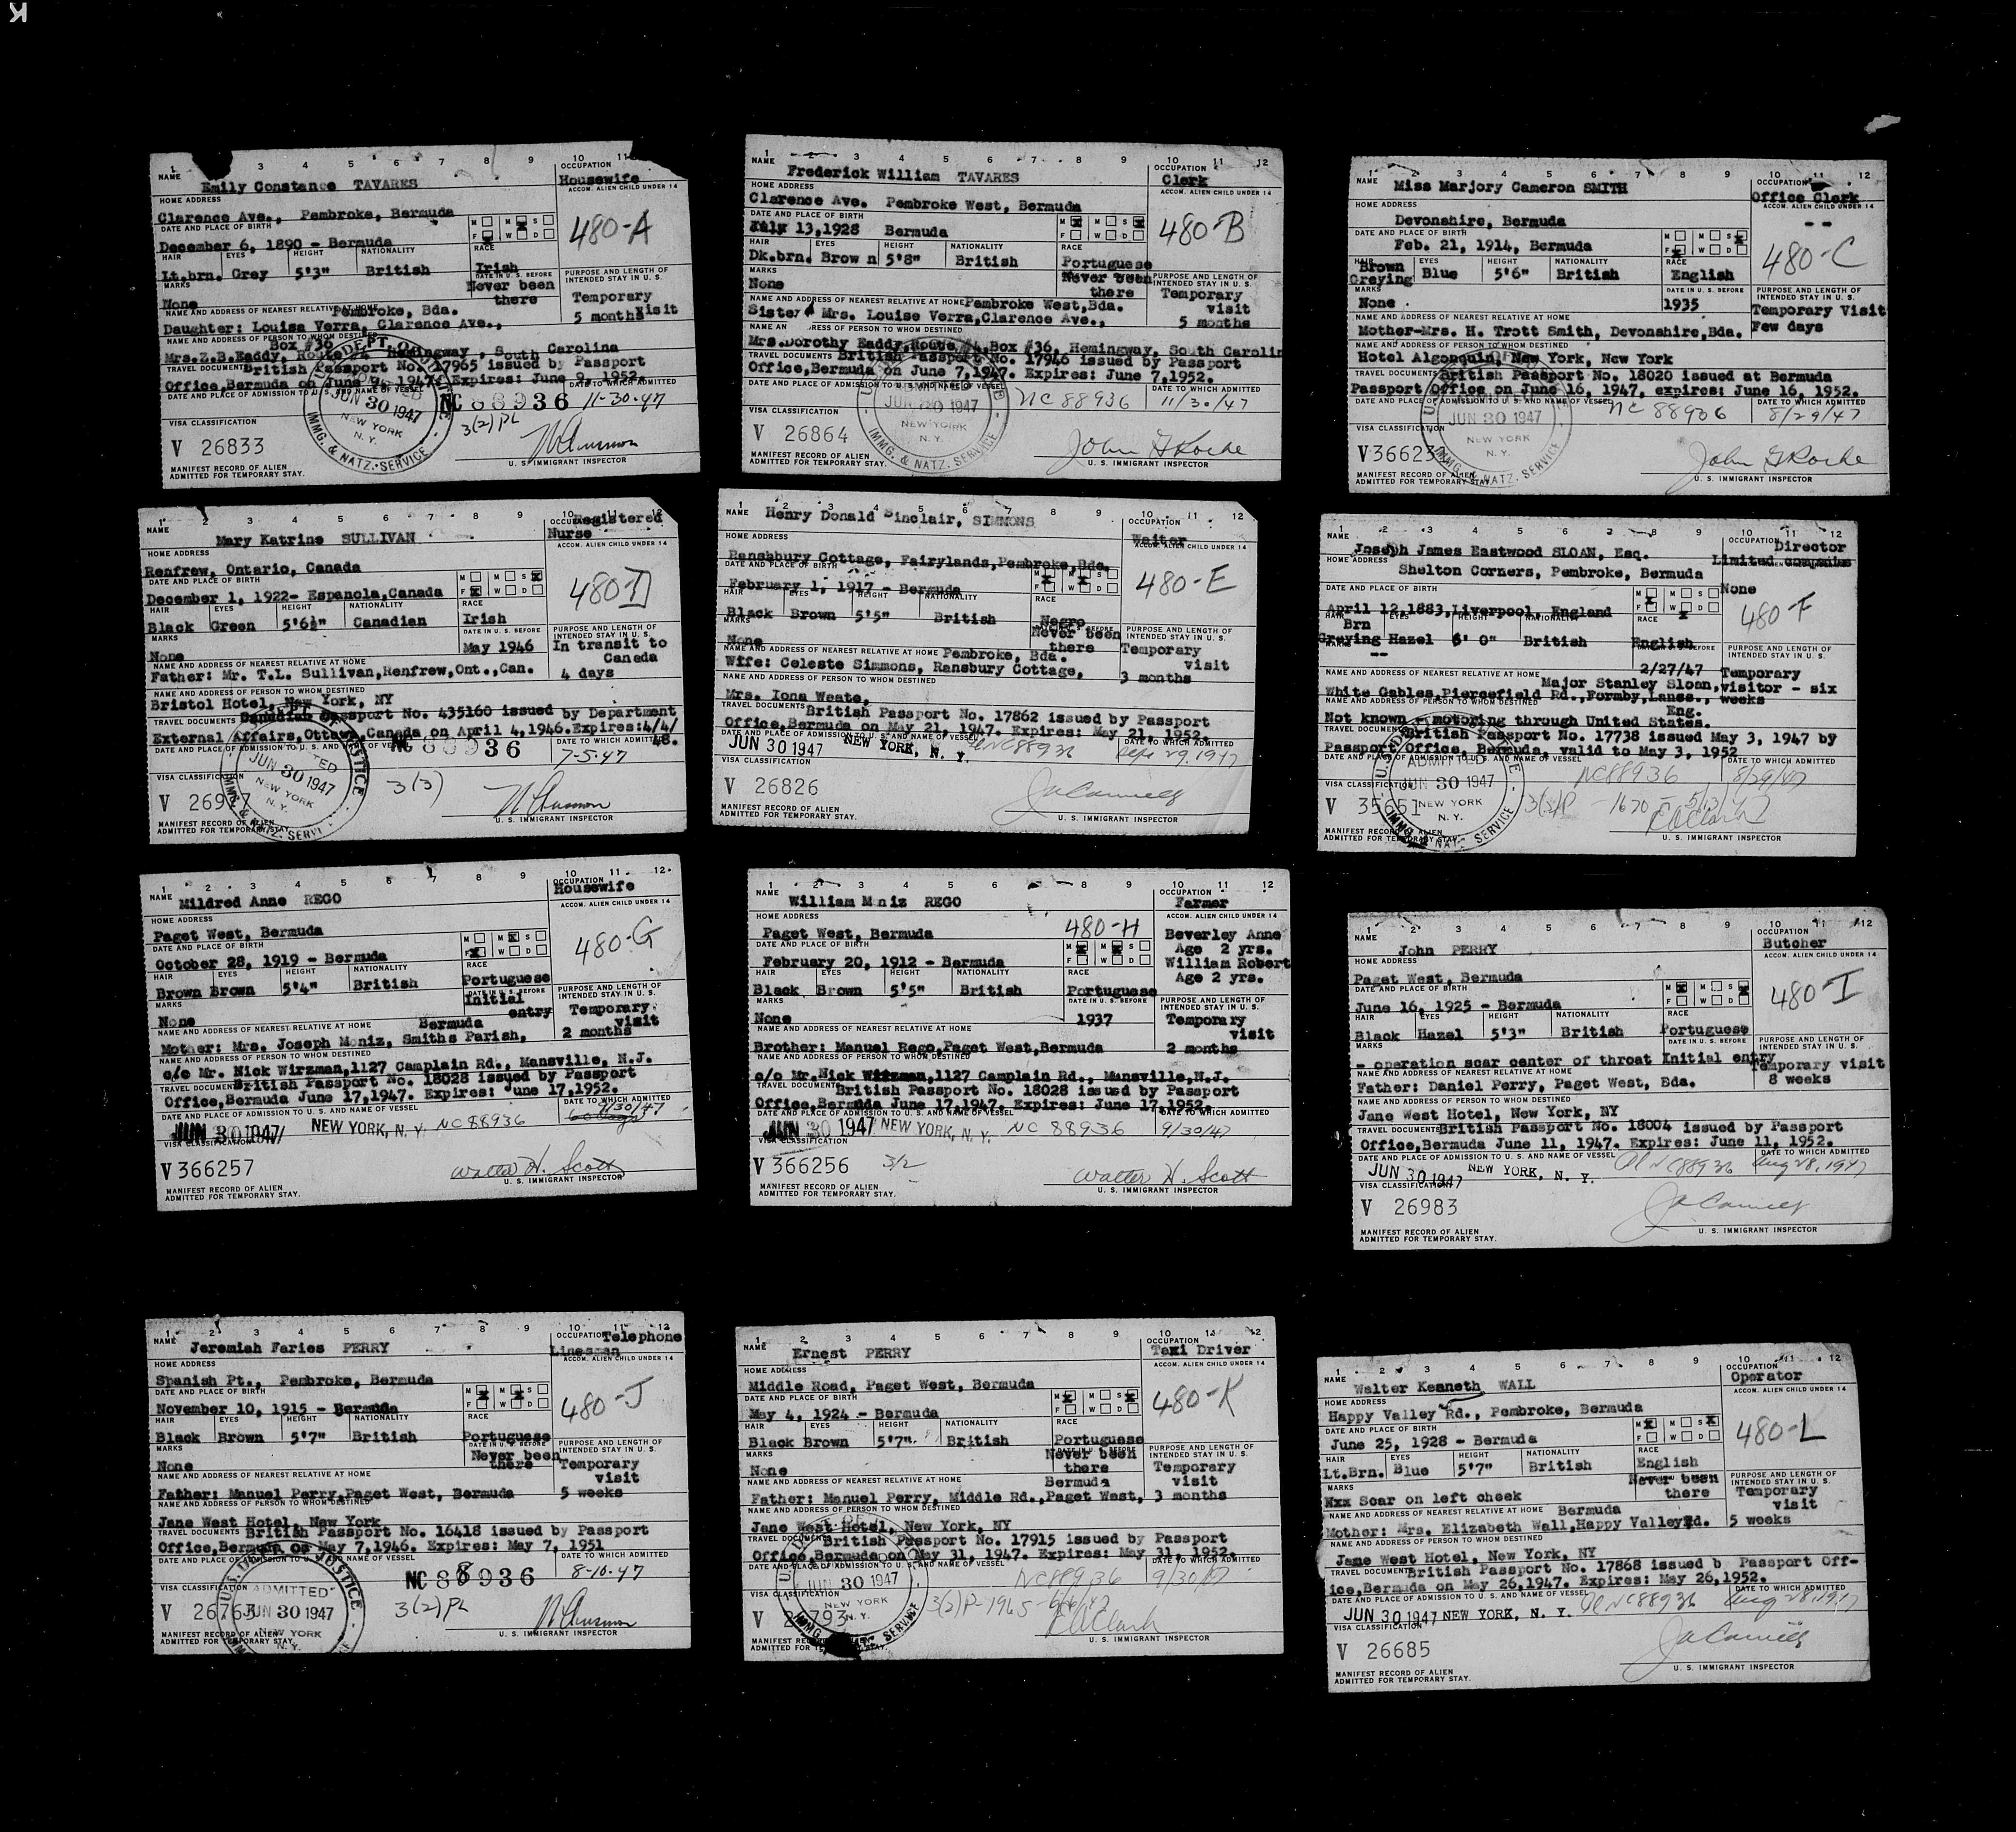 K
1 3 4 5 6 7 8 9 10 11
NAME Emily Constance TAVARES
OCCUPATION Housewife
HOME ADDRESS
ACCOM. ALIEN CHILD UNDER 14
Clarence Ave., Pembroke, Bermuda
480-A
DATE AND PLACE OF BIRTH
M M S
F W D
December 6, 1890 - Bermuda
HAIR EYES HEIGHT NATIONALITY RACE
Lt.brn. Grey 5'3" British Irish
MARKS
DATE IN U. S. BEFORE
Never been there
PURPOSE AND LENGTH OF INTENDED STAY IN U. S.
Temporary visit
5 months
None
NAME AND ADDRESS OF NEAREST RELATIVE AT HOME Pembroke, Bda.
Daughter: Louisa Verra, Clarence Ave.,
NAME AND ADDRESS OF PERSON TO WHOM DESTINED
Box #36
Mrs.Z.B.Eaddy, Route Hemingway, South Carolina
TRAVEL DOCUMENTS British Passport No. 17965 issued by Passport
Office,Bermuda on June 9, 1947. Expires: June 1952.
DATE AND PLACE OF ADMISSION TO U. S. AND NAME OF VESSEL
DATE TO WHICH ADMITTED
JUN 30 1947 NEW YORK N. Y.
IMMG. & NATZ. SERVICE
NC 88936 11-30-47
VISA CLASSIFICATION
3(2)PL
V 26833
U. S. IMMIGRANT INSPECTOR
MANIFEST RECORD OF ALIEN
ADMITTED FOR TEMPORARY STAY.
1 2 3 4 5 6 7 8 9 10 11 12
NAME Frederick William TAVARES
OCCUPATION Clerk
HOME ADDRESS
ACCOM. ALIEN CHILD UNDER 14
Clarence Ave. Pembroke West, Bermuda
480-B
DATE AND PLACE OF BIRTH
M M S
F W D
July 13,1928 Bermuda
HAIR EYES HEIGHT NATIONALITY RACE
Dk.brn. Brow n 5'8" British Portuguese
MARKS
Never been there
PURPOSE AND LENGTH OF INTENDED STAY IN U. S.
Temporary visit
5 months
None
NAME AND ADDRESS OF NEAREST RELATIVE AT HOME Pembroke West,Bda.
Sister Mrs. Louise Verra,Clarence Ave.,
NAME AN RESS OF PERSON TO WHOM DESTINED
Mrs.Dorothy Eaddy,Route #4,Box #36, Hemingway, South Carolin
TRAVEL DOCUMENTS British Passport No. 17946 issued by Passport
Office,Bermuda on June 7,1947. Expires: June 7,1952.
DATE AND PLACE OF ADMISSION TO U. S. AND NAME OF VESSEL
DATE TO WHICH ADMITTED
NEW YORK N. Y.
IMMG. & NATZ. SERVICE
NC 88936 11/30/47
VISA CLASSIFICATION
V 26864
U. S. IMMIGRANT INSPECTOR
MANIFEST RECORD OF ALIEN
ADMITTED FOR TEMPORARY STAY.
1 2 3 4 5 6 7 8 9 10 11 12
NAME Miss Marjory Cameron SMITH
OCCUPATION Office Clerk
HOME ADDRESS
ACCOM. ALIEN CHILD UNDER 14
--
Devonshire, Bermuda
480-C
DATE AND PLACE OF BIRTH
M M S
F W D
Feb. 21, 1914, Bermuda
HAIR EYES HEIGHT NATIONALITY RACE
Brown Greying Blue 5'6" British English
MARKS
DATE IN U. S. BEFORE
1935
PURPOSE AND LENGTH OF INTENDED STAY IN U. S.
Temporary Visit
Few days
None
NAME AND ADDRESS OF NEAREST RELATIVE AT HOME
Mother-Mrs. H. Trott Smith, Devonshire,Bda.
NAME AND ADDRESS OF PERSON TO WHOM DESTINED
Hotel Algonquin, New York, New York
TRAVEL DOCUMENTS British Passport No. 18020 issued at Bermuda
Passport Office on June 16, 1947, expires: June 16, 1952.
DATE AND PLACE OF ADMISSION TO U. S. AND NAME OF VESSEL
DATE TO WHICH ADMITTED
JUN 30 1947 NEW YORK N. Y.
IMMG. & NATZ. SERVICE
NC 88936 8/29/47
VISA CLASSIFICATION
V36623
U. S. IMMIGRANT INSPECTOR
MANIFEST RECORD OF ALIEN
ADMITTED FOR TEMPORARY STAY.
1 2 3 4 5 6 7 8 9 10
NAME Mary Katrine SULLIVAN
OCCU Registered Nurse
HOME ADDRESS
ACCOM. ALIEN CHILD UNDER 14
Renfrew, Ontario, Canada
480-D
DATE AND PLACE OF BIRTH
M M S
F W D
December 1, 1922- Espanola,Canada
HAIR EYES HEIGHT NATIONALITY RACE
Black Green 5'6½" Canadian Irish
MARKS
DATE IN U. S. BEFORE
May 1946
PURPOSE AND LENGTH OF INTENDED STAY IN U. S.
In transit to Canada
4 days
None
NAME AND ADDRESS OF NEAREST RELATIVE AT HOME
Father: Mr. T.L. Sullivan,Renfrew,Ont.,Can.
NAME AND ADDRESS OF PERSON TO WHOM DESTINED
Bristol Hotel, New York, NY
TRAVEL DOCUMENTS Canadian Passport No. 435160 issued by Department
External Affairs,Ottawa,Canada on April 4,1946.Expires:4/4/48.
DATE AND PLACE OF ADMISSION TO U. S. AND NAME OF VESSEL
DATE TO WHICH ADMITTED
JUN 30 1947 NEW YORK N. Y.
NC 88936 7-5-47
VISA CLASSIFICATION
3(3)
U. S. IMMIGRANT INSPECTOR
MANIFEST RECORD OF ALIEN
ADMITTED FOR TEMPORARY STAY.
1 2 3 4 5 6 7 8 9 10 11 12
NAME Henry Donald Sinclair, SIMMONS
OCCUPATION Waiter
HOME ADDRESS
ACCOM. ALIEN CHILD UNDER 14
Ransbbury Cottage, Fairylands,Pembroke,Bda.
480-E
DATE AND PLACE OF BIRTH
M M S
F W D
February 1, 1917 - Bermuda
HAIR EYES HEIGHT NATIONALITY RACE
Black Brown 5'5" British Negro
MARKS
Never been there
PURPOSE AND LENGTH OF INTENDED STAY IN U. S.
Temporary visit
3 months
None
NAME AND ADDRESS OF NEAREST RELATIVE AT HOME Pembroke, Bda.
Wife: Celeste Simmons, Ransbury Cottage,
NAME AND ADDRESS OF PERSON TO WHOM DESTINED
Mrs. Iona Weate,
TRAVEL DOCUMENTS British Passport No. 17862 issued by Passport
Office,Bermuda on May 21, 1947. Expires: May 21, 1952.
DATE AND PLACE OF ADMISSION TO U. S. AND NAME OF VESSEL
DATE TO WHICH ADMITTED
JUN 30 1947 NEW YORK, N. Y. NC88936 Sept 29, 1947
VISA CLASSIFICATION
V 26826
U. S. IMMIGRANT INSPECTOR
MANIFEST RECORD OF ALIEN
ADMITTED FOR TEMPORARY STAY.
1 2 3 4 5 6 7 8 9 10 11 12
NAME Joseph James Eastwood SLOAN, Esq.
OCCUPATION Director
Limited companies
HOME ADDRESS
Shelton Corners, Pembroke, Bermuda
None
480-F
DATE AND PLACE OF BIRTH
M M S
F W D
April 12,1883,Liverpool, England
HAIR EYES HEIGHT NATIONALITY RACE
Brn Greying Hazel 6' 0" British English
--
2/27/47
PURPOSE AND LENGTH OF INTENDED STAY IN U. S.
Temporary visitor - six weeks
NAME AND ADDRESS OF NEAREST RELATIVE AT HOME Major Stanley Sloan,
White Gables,Piercefield Rd.,Formby,Lancs., Eng.
NAME AND ADDRESS OF PERSON TO WHOM DESTINED
Not known - motoring through United States.
TRAVEL DOCUMENTS British Passport No. 17738 issued May 3, 1947 by
Passport Office, Bermuda, valid to May 3, 1952
DATE AND PLACE OF ADMISSION TO U. S. AND NAME OF VESSEL
DATE TO WHICH ADMITTED
ADMITTED JUN 30 1947 NEW YORK N. Y.
NC88936 8/29/47
VISA CLASSIFICATION
V 35651
U. S. IMMIGRANT INSPECTOR
MANIFEST RECORD OF ALIEN
ADMITTED FOR TEMPORARY STAY.
1 2 3 4 5 6 7 8 9 10 11 12
NAME Mildred Anne REGO
OCCUPATION Housewife
HOME ADDRESS
ACCOM. ALIEN CHILD UNDER 14
Paget West, Bermuda
480-G
DATE AND PLACE OF BIRTH
M M S
F W D
October 28, 1919 - Bermuda
HAIR EYES HEIGHT NATIONALITY RACE
Brown Brown 5'4" British Portuguese
MARKS
DATE IN U. S. BEFORE
Initial entry
PURPOSE AND LENGTH OF INTENDED STAY IN U. S.
Temporary visit
2 months
None
NAME AND ADDRESS OF NEAREST RELATIVE AT HOME Bermuda
Mother: Mrs. Joseph Moniz, Smiths Parish,
NAME AND ADDRESS OF PERSON TO WHOM DESTINED
c/o Mr. Nick Wirzman,1127 Camplain Rd., Mansville, N.J.
TRAVEL DOCUMENTS British Passport No. 18028 issued by Passport
Office,Bermuda June 17,1947. Expires: June 17,1952.
DATE AND PLACE OF ADMISSION TO U. S. AND NAME OF VESSEL
DATE TO WHICH ADMITTED
JUN 30 1947 NEW YORK, N. Y. NC88936 9/30/47
VISA CLASSIFICATION
V 366257
Walter H. Scott
U. S. IMMIGRANT INSPECTOR
MANIFEST RECORD OF ALIEN
ADMITTED FOR TEMPORARY STAY.
1 2 3 4 5 6 8 9 10 11 12
NAME William Moniz REGO
OCCUPATION Farmer
HOME ADDRESS
480-H
ACCOM. ALIEN CHILD UNDER 14
Paget West, Bermuda
Beverley Anne
Age 2 yrs.
William Robert
Age 2 yrs.
DATE AND PLACE OF BIRTH
M M S
F W D
February 20, 1912 - Bermuda
HAIR EYES HEIGHT NATIONALITY RACE
Black Brown 5'5" British Portuguese
MARKS
DATE IN U. S. BEFORE
1937
PURPOSE AND LENGTH OF INTENDED STAY IN U. S.
Temporary visit
2 months
None
NAME AND ADDRESS OF NEAREST RELATIVE AT HOME
Brother: Manuel Rego,Paget West,Bermuda
NAME AND ADDRESS OF PERSON TO WHOM DESTINED
c/o Mr.Nick Wirzman,1127 Camplain Rd., Mansville,N.J.
TRAVEL DOCUMENTS British Passport No. 18028 issued by Passport
Office,Bermuda June 17,1947. Expires: June 17,1952.
DATE AND PLACE OF ADMISSION TO U. S. AND NAME OF VESSEL
DATE TO WHICH ADMITTED
JUN 30 1947 NEW YORK, N. Y. NC 88936 9/30/47
VISA CLASSIFICATION
V 366256 3/2
Walter H. Scott
U. S. IMMIGRANT INSPECTOR
MANIFEST RECORD OF ALIEN
ADMITTED FOR TEMPORARY STAY.
1 2 3 4 5 6 7 8 9 10 11 12
NAME John PERRY
OCCUPATION Butcher
HOME ADDRESS
ACCOM. ALIEN CHILD UNDER 14
Paget West, Bermuda
480-I
DATE AND PLACE OF BIRTH
M M S
F W D
June 16, 1925 - Bermuda
HAIR EYES HEIGHT NATIONALITY RACE
Black Hazel 5'3" British Portuguese
MARKS
DATE IN U. S. BEFORE
PURPOSE AND LENGTH OF INTENDED STAY IN U. S.
- operation scar center of throat Initial entry
Temporary visit
8 weeks
NAME AND ADDRESS OF NEAREST RELATIVE AT HOME
Father: Daniel Perry, Paget West, Bda.
NAME AND ADDRESS OF PERSON TO WHOM DESTINED
Jane West Hotel, New York, NY
TRAVEL DOCUMENTS British Passport No. 18004 issued by Passport
Office,Bermuda June 11, 1947. Expires: June 11, 1952.
DATE AND PLACE OF ADMISSION TO U. S. AND NAME OF VESSEL
DATE TO WHICH ADMITTED
JUN 30 1947 NEW YORK, N. Y. NC88936 Aug 28, 1947
VISA CLASSIFICATION
V 26983
U. S. IMMIGRANT INSPECTOR
MANIFEST RECORD OF ALIEN
ADMITTED FOR TEMPORARY STAY.
1 2 3 4 5 6 7 8 9 10 11 12
NAME Jeremiah Faries PERRY
OCCUPATION Telephone Linesman
HOME ADDRESS
ACCOM. ALIEN CHILD UNDER 14
Spanish Pt., Pembroke, Bermuda
480-J
DATE AND PLACE OF BIRTH
M M S
F W D
November 10, 1915 - Bermuda
HAIR EYES HEIGHT NATIONALITY RACE
Black Brown 5'7" British Portuguese
MARKS
DATE IN U. S. BEFORE
Never been there
PURPOSE AND LENGTH OF INTENDED STAY IN U. S.
Temporary visit
5 weeks
None
NAME AND ADDRESS OF NEAREST RELATIVE AT HOME
Father: Manuel Perry,Paget West, Bermuda
NAME AND ADDRESS OF PERSON TO WHOM DESTINED
Jane West Hotel, New York
TRAVEL DOCUMENTS British Passport No. 16418 issued by Passport
Office,Bermuda on May 7,1946. Expires: May 7, 1951
DATE AND PLACE OF ADMISSION TO U. S. AND NAME OF VESSEL
DATE TO WHICH ADMITTED
ADMITTED JUN 30 1947 NEW YORK N. Y.
NC 88936 8-10-47
VISA CLASSIFICATION
3(2)PL
V 26763
U. S. IMMIGRANT INSPECTOR
MANIFEST RECORD OF ALIEN
ADMITTED FOR TEMPORARY STAY
1 2 3 4 5 6 7 8 9 10 11 12
NAME Ernest PERRY
OCCUPATION Taxi Driver
HOME ADDRESS
ACCOM. ALIEN CHILD UNDER 14
Middle Road, Paget West, Bermuda
480-K
DATE AND PLACE OF BIRTH
M M S
F W D
May 4, 1924 - Bermuda
HAIR EYES HEIGHT NATIONALITY RACE
Black Brown 5'7" British Portuguese
MARKS
DATE IN U. S. BEFORE
Never been there
PURPOSE AND LENGTH OF INTENDED STAY IN U. S.
Temporary visit
3 months
None
NAME AND ADDRESS OF NEAREST RELATIVE AT HOME Bermuda
Father: Manuel Perry, Middle Rd.,Paget West,
NAME AND ADDRESS OF PERSON TO WHOM DESTINED
Jane West Hotel, New York, NY
TRAVEL DOCUMENTS British Passport No. 17915 issued by Passport
Office,Bermuda on May 31, 1947. Expires: May 31, 1952.
DATE AND PLACE OF ADMISSION TO U. S. AND NAME OF VESSEL
DATE TO WHICH ADMITTED
JUN 30 1947 NEW YORK N. Y.
NC88936 9/30/47
VISA CLASSIFICATION
U. S. IMMIGRANT INSPECTOR
MANIFEST
ADMITTED FOR
1 2 3 4 5 6 7 8 9 10 11 12
NAME Walter Kenneth WALL
OCCUPATION Operator
HOME ADDRESS
ACCOM. ALIEN CHILD UNDER 14
Happy Valley Rd., Pembroke, Bermuda
480-L
DATE AND PLACE OF BIRTH
M M S
F W D
June 25, 1928 - Bermuda
HAIR EYES HEIGHT NATIONALITY RACE
Lt.Brn. Blue 5'7" British English
MARKS
Never been there
PURPOSE AND LENGTH OF INTENDED STAY IN U. S.
Temporary visit
5 weeks
Nxx Scar on left cheek
NAME AND ADDRESS OF NEAREST RELATIVE AT HOME Bermuda
Mother: Mrs. Elizabeth Wall,Happy ValleyRd.
NAME AND ADDRESS OF PERSON TO WHOM DESTINED
Jane West Hotel, New York, NY
TRAVEL DOCUMENTS British Passport No. 17868 issued b Passport Off-
ice,Bermuda on May 26,1947. Expires: May 26,1952.
DATE AND PLACE OF ADMISSION TO U. S. AND NAME OF VESSEL
DATE TO WHICH ADMITTED
JUN 30 1947 NEW YORK, N. Y. NC88936 Aug 28, 1947
VISA CLASSIFICATION
V 26685
U. S. IMMIGRANT INSPECTOR
MANIFEST RECORD OF ALIEN
ADMITTED FOR TEMPORARY STAY.